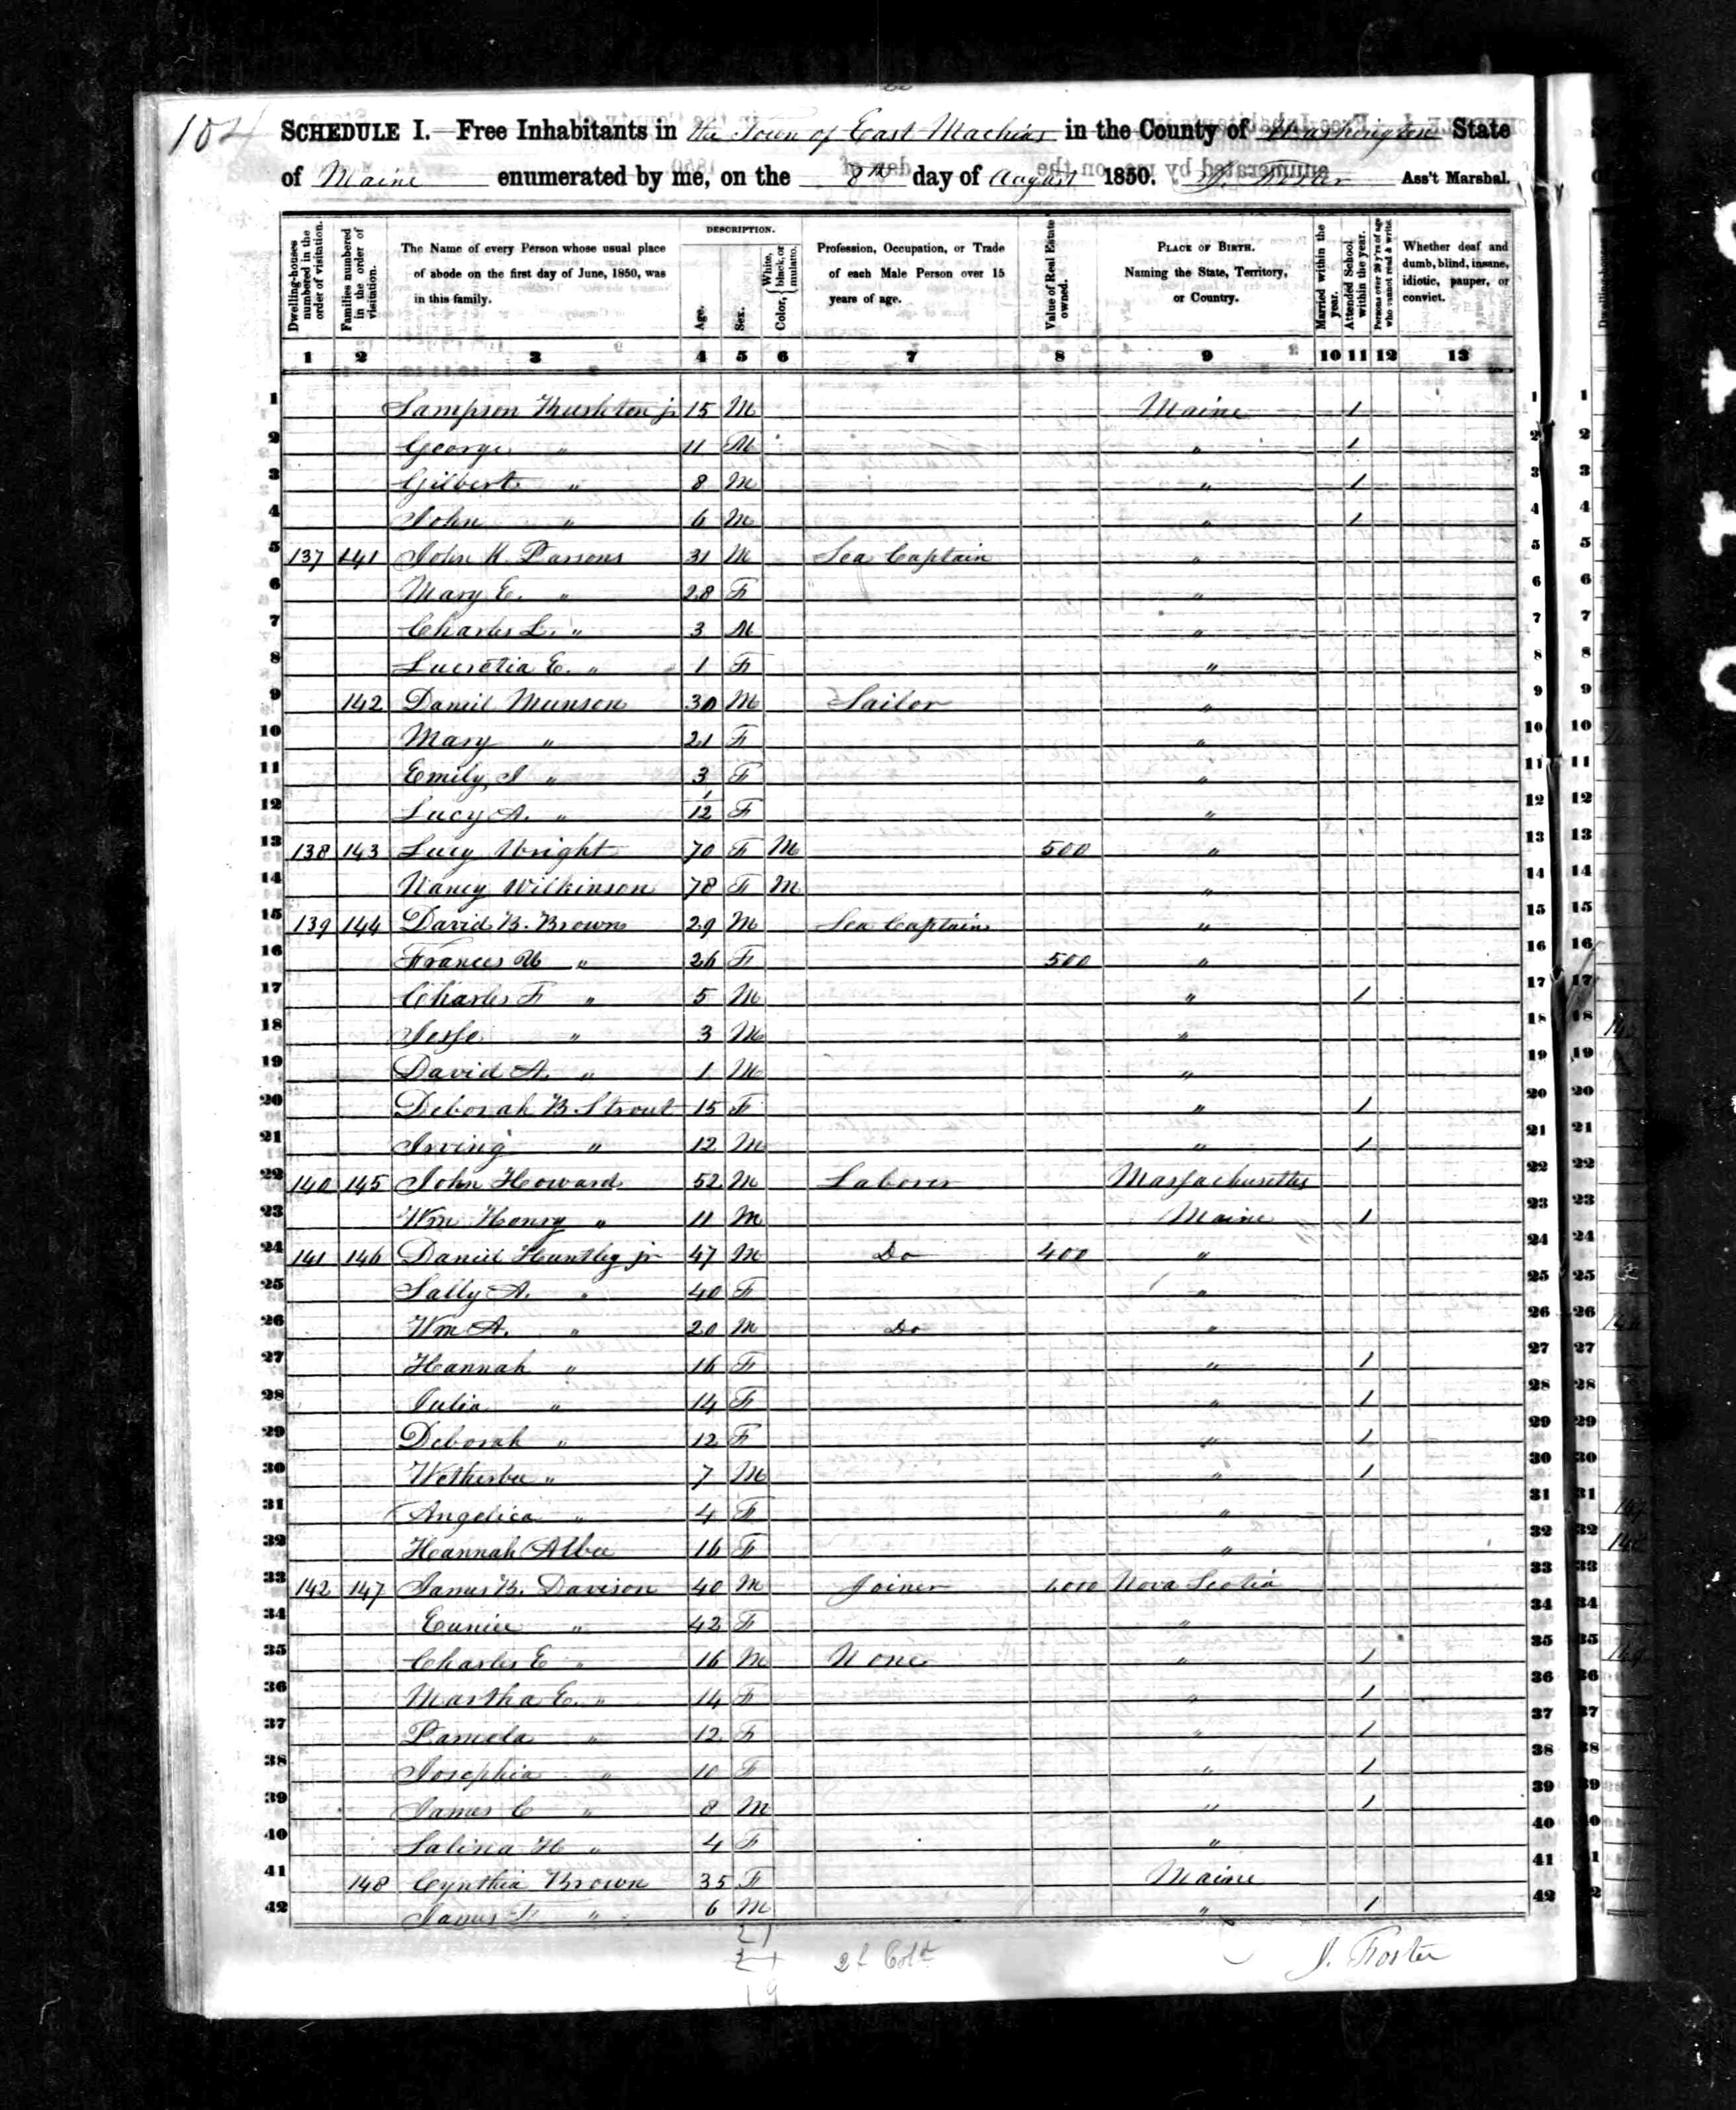 104
SCHEDULE I.—Free Inhabitants in the Town of East Machias in the County of Washington State
of Maine enumerated by me, on the 8th day of August 1850. J. Foster Ass't Marshal.
Dwelling-houses numbered in the order of visitation.
Families numbered in the order of visitation.
The Name of every Person whose usual place of abode on the first day of June, 1850, was in this family.
DESCRIPTION.
Age.
Sex.
Color, { White, black, or mulatto.
Profession, Occupation, or Trade of each Male Person over 15 years of age.
Value of Real Estate owned.
PLACE OF BIRTH. Naming the State, Territory, or Country.
Married within the year.
Attended School within the year.
Persons over 20 y'rs of age who cannot read & write.
Whether deaf and dumb, blind, insane, idiotic, pauper, or convict.
1 2 3 4 5 6 7 8 9 10 11 12 13
1 Sampson jr 15 M Maine 1 1
2 George " 11 M " 1 2
3 Gilbert " 8 M " 1 3
4 John " 6 M " 1 4
5 137 141 John K. Parsons 31 M Sea Captain " 5
6 Mary E. " 28 F " 6
7 Charles L. " 3 M " 7
8 Lucretia E. " 1 F " 8
9 142 Daniel Munson 30 M Sailor " 9
10 Mary " 21 F " 10
11 Emily J " 3 F " 11
12 Lucy A. " 1/12 F " 12
13 138 143 Lucy Wright 70 F M 500 " 13
14 Nancy Wilkinson 78 F M " 14
15 139 144 David B. Brown 29 M Sea Captain " 15
16 Frances " 26 F 500 " 16
17 Charles F " 5 M " 1 17
18 Jesse " 3 M " 18
19 David A. " 1 M " 19
20 Deborah B. Strout 15 F " 1 20
21 Irving " 12 M " 1 21
22 140 145 John Howard 52 M Laborer Massachusetts 22
23 Wm Henry " 11 M Maine 1 23
24 141 146 Daniel Huntley jr 47 M Do 400 " 24
25 Sally A. " 40 F " 25
26 Wm A. " 20 M Do " 26
27 Hannah " 16 F " 1 27
28 Julia " 14 F " 1 28
29 Deborah " 12 F " 1 29
30 Wetherbee " 7 M " 1 30
31 Angelica " 4 F " 31
32 Hannah Albee 16 F " 32
33 142 147 James B. Davison 40 M Joiner Nova Scotia 33
34 Eunice " 42 F " 34
35 Charles E " 16 M None " 1 35
36 Martha E. " 14 F " 1 36
37 Pamela " 12 F " 1 37
38 Josephia " 10 F " 1 38
39 James C " 8 M " 1 39
40 Salina H " 4 F " 40
41 148 Cynthia Brown 35 F Maine 41
42 James F " 6 M " 1 42
J. Foster